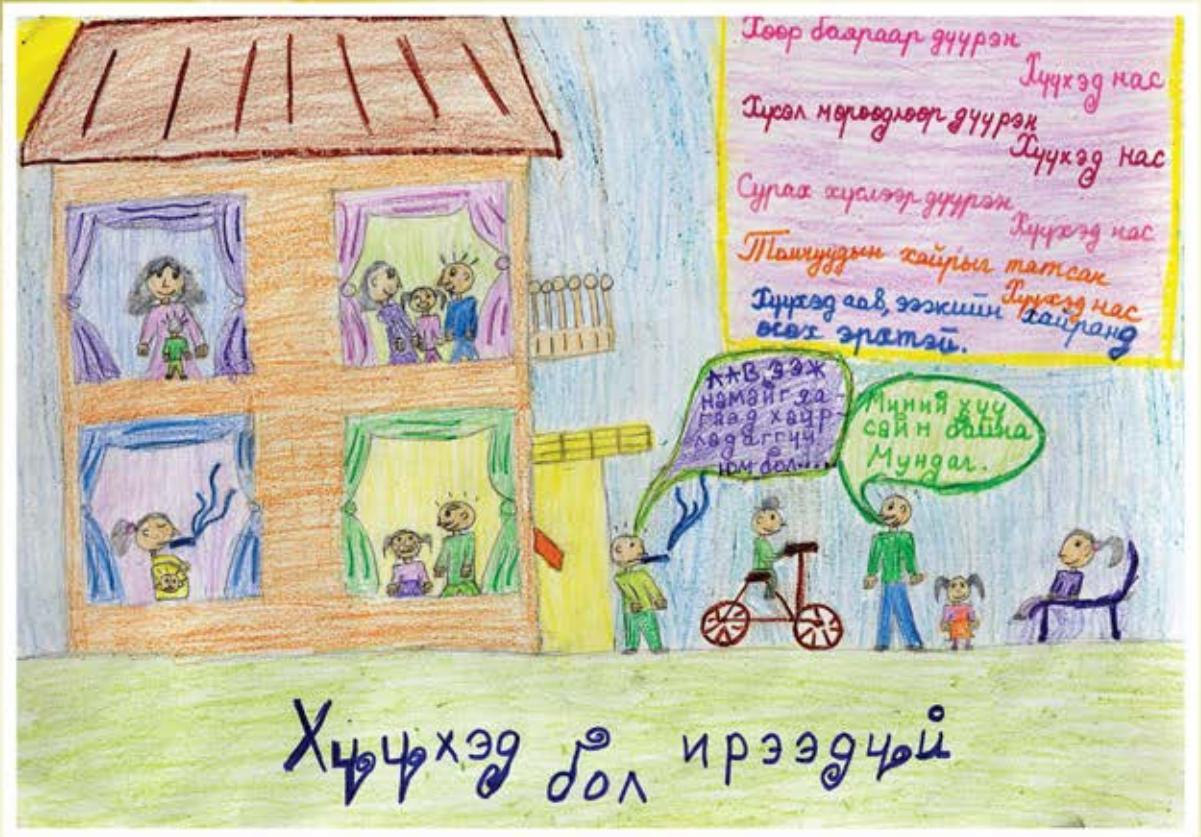 Хөөр баяраар дүүрэн
Хүүхэд нас
Хүсэл мөрөөдлөөр дүүрэн
Хүүхэд нас
Сурах хүслээр дүүрэн
Хүүхэд нас
Томчуудын хайрыг татсан
Хүүхэд нас
Хүүхэд аав, ээжийн хайранд
өсөх эрхтэй.
ААВ, ЭЭЖ
намайг яа-
гаад хайр-
ладаггүй
юм бол...
Миний хүү
сайн байна
Мундаг.
Хүүхэд бол ирээдүй